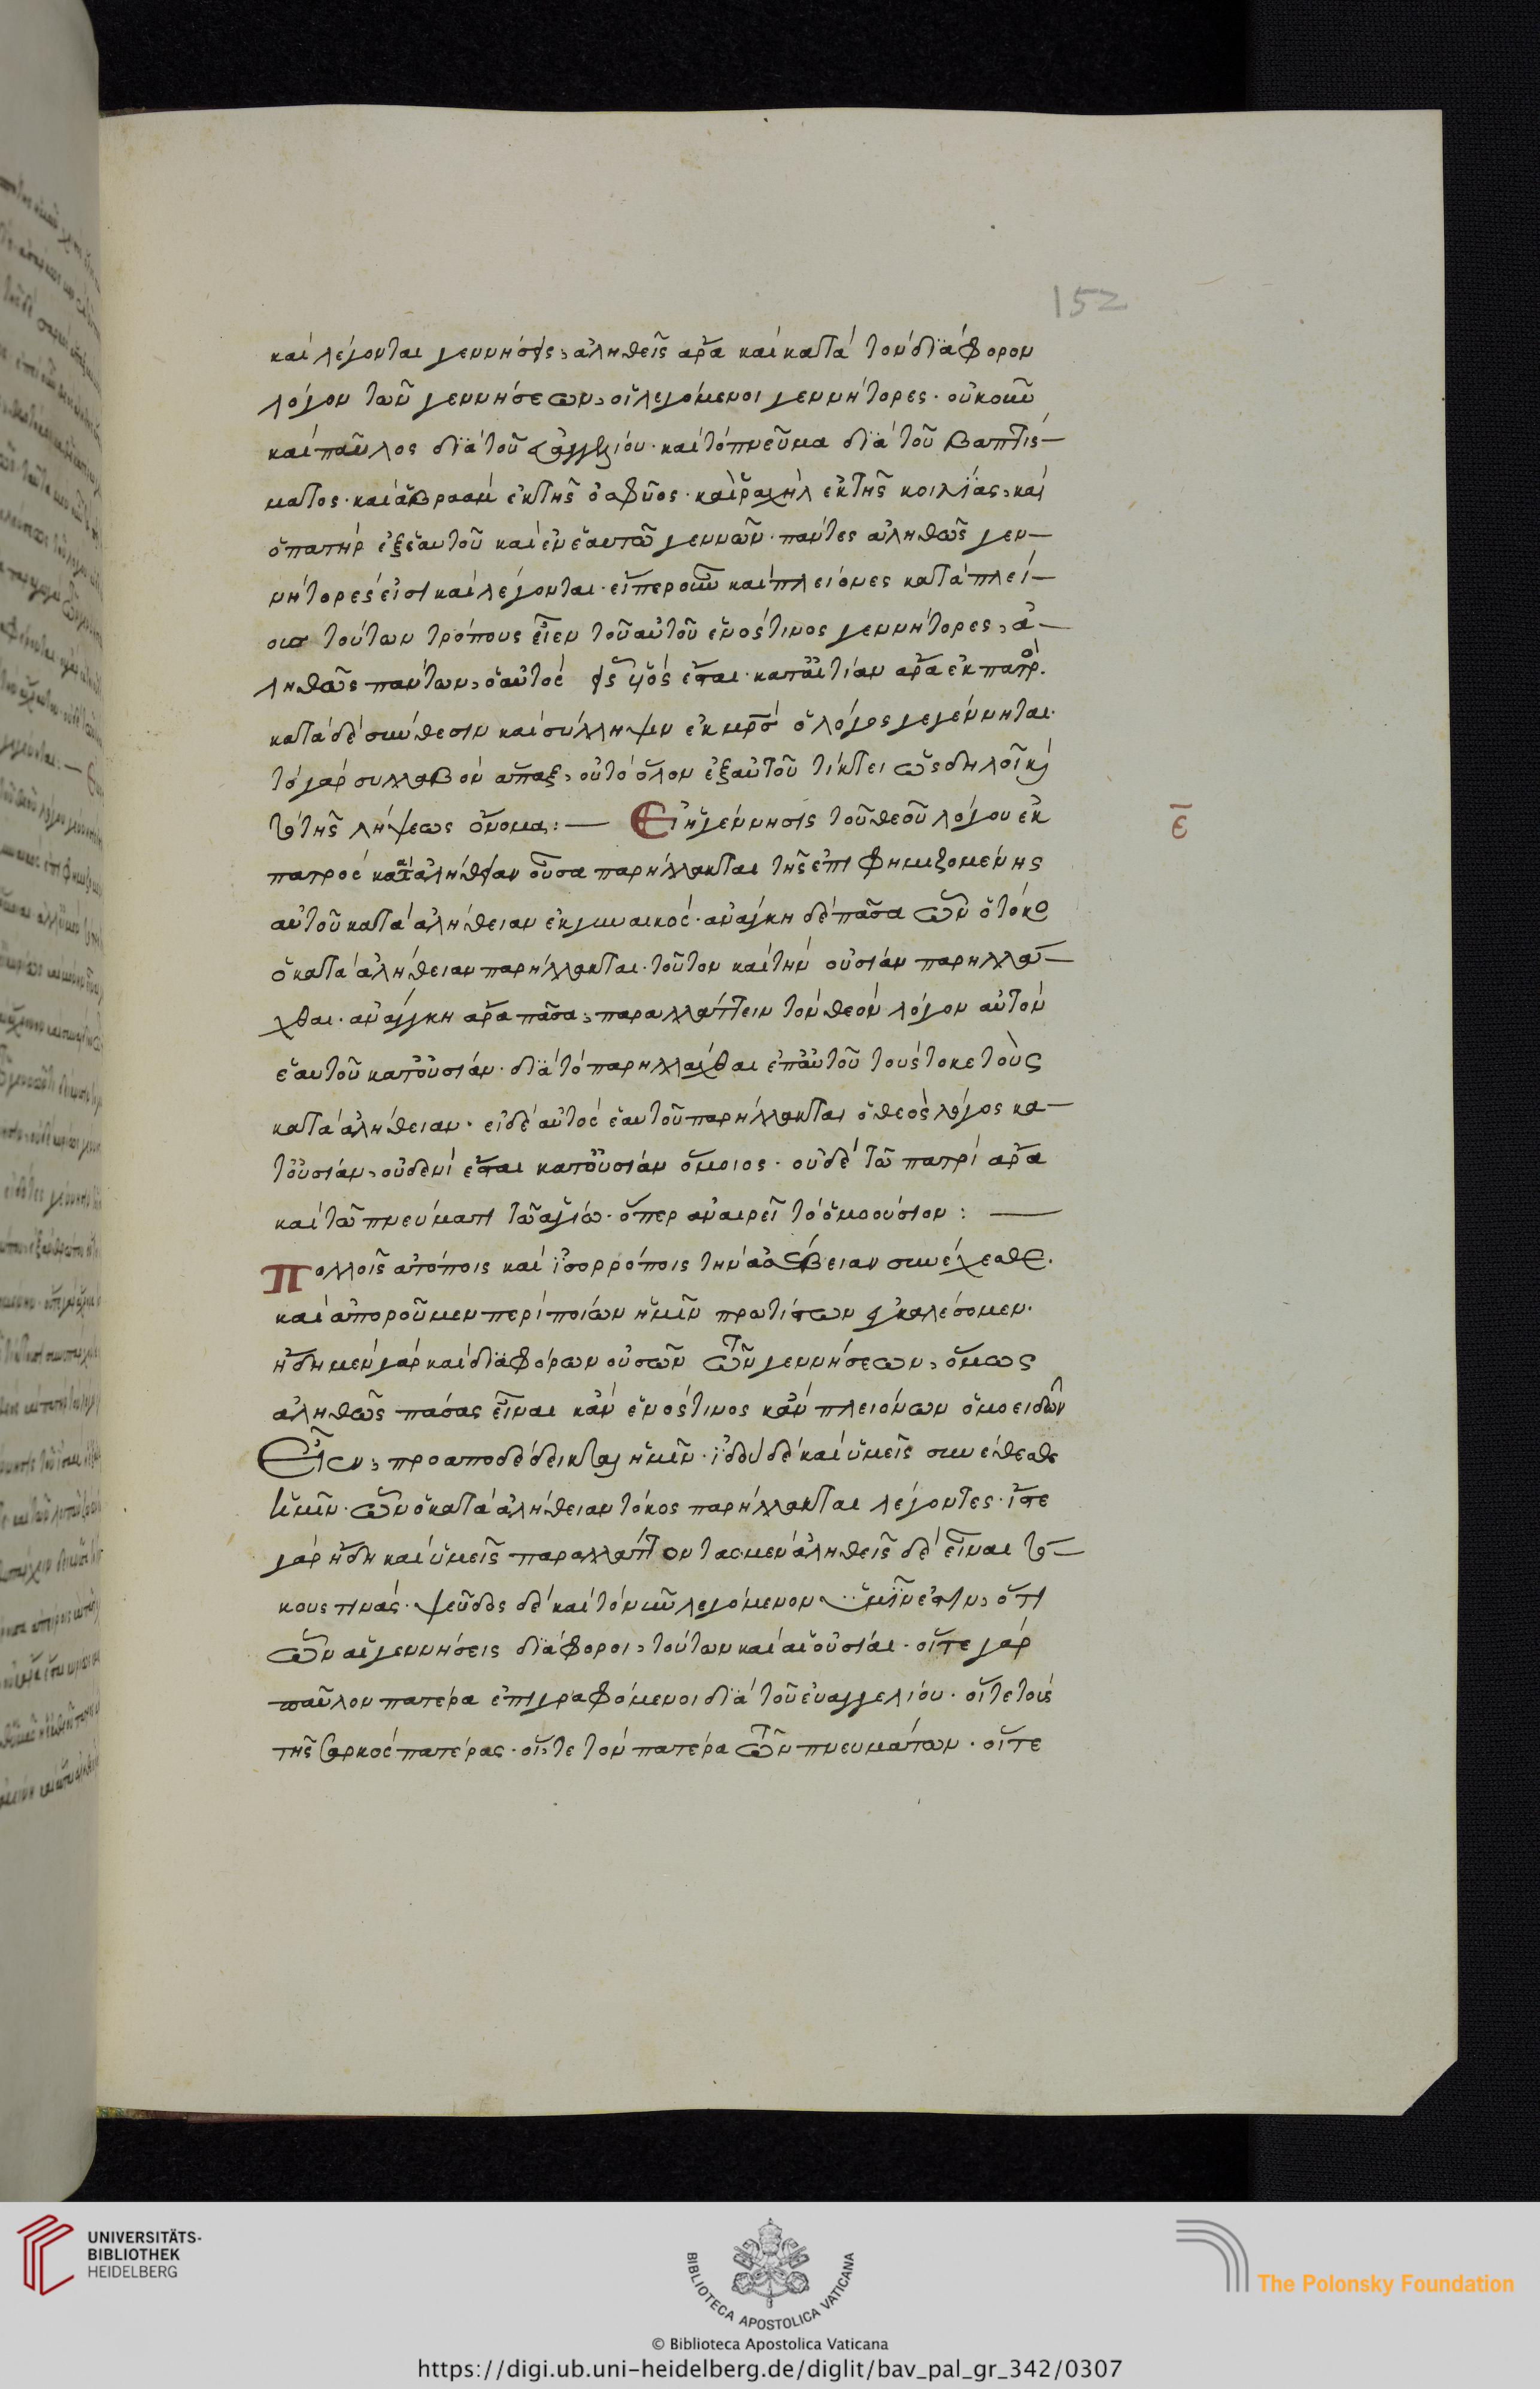 152
καὶ λέγονται γεννήσεις, ἀληθεῖς ἄρα καὶ κατὰ τὸν διάφορον
λόγον τῶν γεννήσεων, οἱ λεγόμενοι γεννήτορες. οὐκοῦν
καὶ παῦλος διὰ τοῦ εὐαγγελίου. καὶ τὸ πνεῦμα διὰ τοῦ βαπτίσ-
ματος. καὶ ἀβραὰμ ἐκ τῆς ὀσφῦος. καὶ ῥαχὴλ ἐκ τῆς κοιλίας, καὶ
ὁ πατὴρ ἐξ ἑαυτοῦ καὶ ἐν ἑαυτῶ γεννῶν. πάντες ἀληθῶς γεν-
νήτορές εἰσι καὶ λέγονται. εἴπερ οὖν καὶ πλείονες κατὰ πλεί-
ους τούτων τρόπους εἶεν τοῦ αὐτοῦ ἑνός τινος γεννήτορες, ἀ-
ληθῶς πάντων, ὁ αὐτὸς εἷς υἱὸς ἔσται. κατ' αἰτίαν ἄρα ἐκ πατρὸς.
κατὰ δὲ σύνθεσιν καὶ σύλληψιν ἐκ μητρὸς ὁ λόγος γεγέννηται.
τὸ γὰρ συλλαβὸν ἅπαξ, οὐ τὸ ὅλον ἐξ αὐτοῦ τίκτει ὡς δηλοῖ καὶ
τὸ τῆς λήψεως ὄνομα:— Εἰ ἡ γέννησις τοῦ θεοῦ λόγου ἐκ
ε
πατρὸς κατὰ ἀλήθειαν οὖσα παρήλλακται τῆς ἐπιφημιζομένης
αὐτοῦ κατὰ ἀλήθειαν ἐκ γυναικός. ἀνάγκη δὲ πᾶσα ὧν ὁ τόκος
ὁ κατὰ ἀλήθειαν παρήλλακται. τοῦτον καὶ τὴν οὐσίαν παρηλλά-
χθαι. ἀνάγκη ἄρα πᾶσα, παραλλάττειν τὸν θεὸν λόγον αὐτὸν
ἑαυτοῦ κατ' οὐσίαν. διὰ τὸ παρηλλάχθαι ἐπ' αὐτοῦ τοὺς τοκετοὺς
κατὰ ἀλήθειαν. εἰ δὲ αὐτὸς ἑαυτοῦ παρήλλακται ὁ θεὸς λόγος κα-
τ' οὐσίαν, οὐδενὶ ἔσται κατ' οὐσίαν ὅμοιος. οὐδὲ τῶ πατρὶ ἄρα
καὶ τῶ πνεύματι τῶ ἁγίω. ὅπερ ἀναιρεῖ τὸ ὁμοούσιον:—
Πολλοῖς ἀτόποις καὶ ἰσορρόποις τὴν ἀσέβειαν συνέχεσθε.
καὶ ἀποροῦμεν περὶ ποίων ἡμῖν πρωτίστων ἐγκαλέσομεν.
ἤδη μὲν γὰρ καὶ διαφόρων οὐσῶν τῶν γεννήσεων, ὅμως
ἀληθῶς πάσας εἶναι κἂν ἑνός τινος κἂν πλειόνων ὁμοειδῶν
εἶεν, προαποδέδεικται ἡμῖν. ἰδοὺ δὲ καὶ ὑμεῖς συνέθεσθε
ἡμῖν. ὧν ὁ κατὰ ἀλήθειαν τόκος παρήλλακται λέγοντες. ἴστε
γὰρ ἤδη καὶ ὑμεῖς παραλλάττοντας μὲν ἀληθεῖς δὲ εἶναι τό-
κους τινάς. ψεῦδος δὲ καὶ τὸ νῦν λεγόμενον ὑμῖν ἐστιν, ὅτι
ὧν αἱ γεννήσεις διάφοροι, τούτων καὶ αἱ οὐσίαι. οἵ τε γὰρ
παῦλον πατέρα ἐπιγραφόμενοι διὰ τοῦ εὐαγγελίου. οἵ τε τοὺς
τῆς σαρκὸς πατέρας. οἵ τε τὸν πατέρα τῶν πνευμάτων. οἵ τε
UNIVERSITÄTS-
BIBLIOTHEK
HEIDELBERG
BIBLIOTECA APOSTOLICA VATICANA
© Biblioteca Apostolica Vaticana
The Polonsky Foundation
https://digi.ub.uni-heidelberg.de/diglit/bav_pal_gr_342/0307